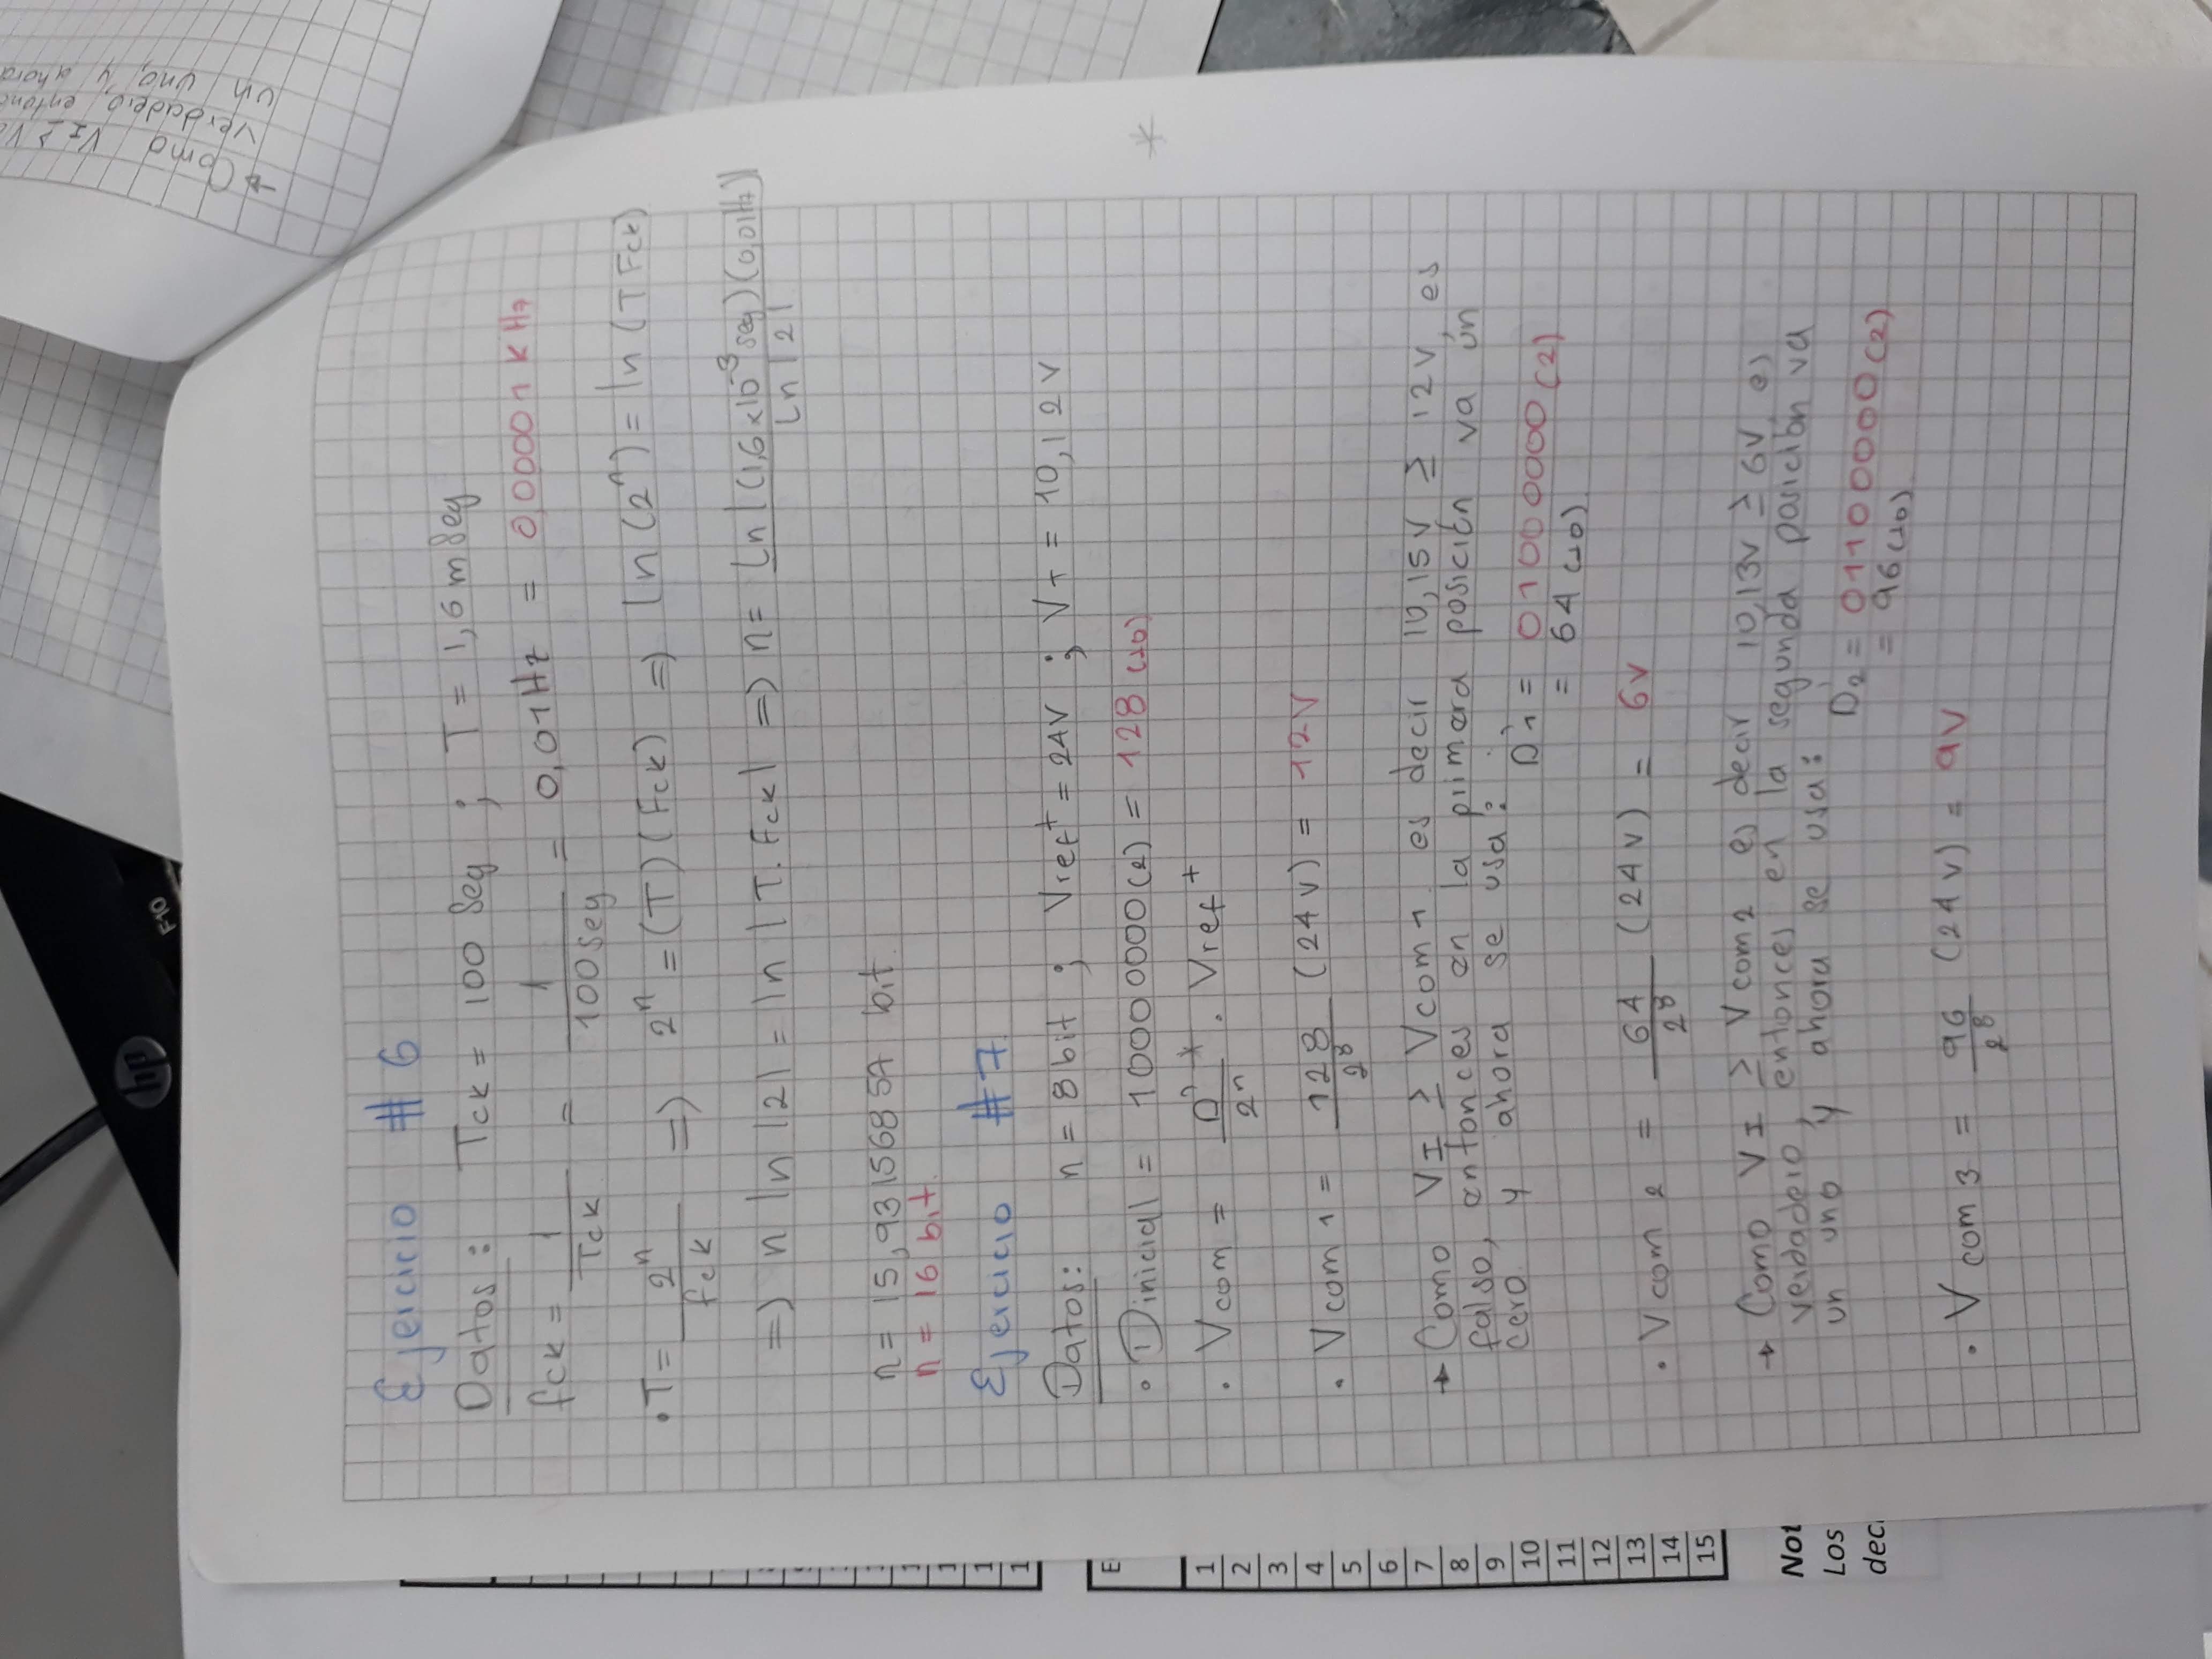 hp
F10
→ Como VI ≥ Vc
verdadero, entonc
un uno, y ahora
Ejercicio # 6
Datos: Tck = 100 Seg ; T = 1,6 mSeg
fck = 1/Tck = 1/100seg = 0,01Hz = 0,00001 KHz
• T = 2^n/fck => 2^n = (T)(Fck) => ln(2^n) = ln(T Fck)
=> n ln |2| = ln |T. Fck| => n = Ln |(1,6×10^-3 seg)(0,01Hz)|/Ln |2|
n = 15,93156857 bit.
n = 16 bit.
Ejercicio #7
Datos: n = 8 bit ; Vref+ = 24V ; VI = 10,12V
• Dinicial = 10000000(2) = 128(10)
• Vcom = D'*/2^n . Vref+
*
• Vcom 1 = 128/2^8 (24V) = 12V
→ Como VI ≥ Vcom1 es decir 10,15V ≥ 12V, es
falso, entonces en la primera posición va un
cero y ahora se usa:
D'1 = 01000000(2)
= 64(10)
• Vcom 2 = 64/2^8 (24V) = 6V
→ Como VI ≥ Vcom2 es decir 10,13V ≥ 6V, es
verdadero, entonces en la segunda posición va
un uno y ahora se usa:
D'2 = 01100000(2)
= 96(10)
• Vcom 3 = 96/2^8 (24V) = 9V
1
1
1
E
1
2
3
4
5
6
7
8
9
10
11
12
13
14
15
Not
Los
dec